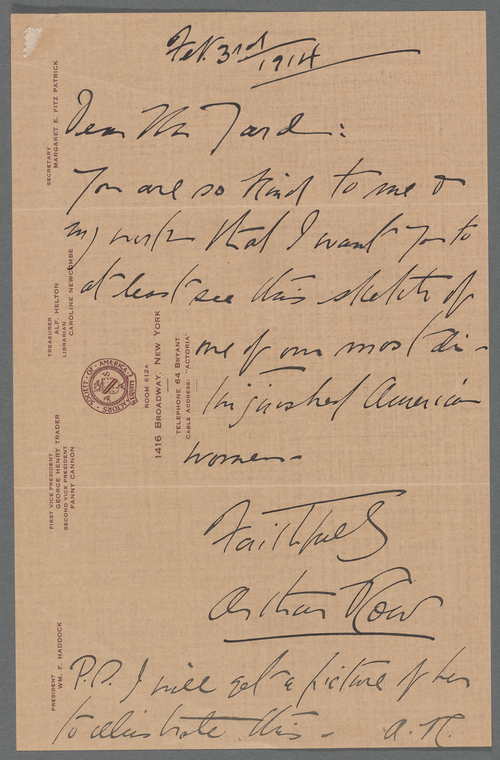 Feb. 3rd
1914
Dear Mr. Yard:
You are so kind to me &
my work that I want you to
at least see this sketch of
one of our most dis-
tinguished American
women -
Faithfully
Arthur Row
P.S. I will get a picture of her
to illustrate this - A. R.
SECRETARY
MARGARET E. FITZ PATRICK
TREASURER
ALF. HELTON
LIBRARIAN
CAROLINE NEWCOMBE
FIRST VICE PRESIDENT
GEORGE HENRY TRADER
SECOND VICE PRESIDENT
FANNY CANNON
PRESIDENT
WM. F. HADDOCK
ACTORS SOCIETY OF AMERICA
ROOM 612A
1416 BROADWAY, NEW YORK
TELEPHONE 64 BRYANT
CABLE ADDRESS: "ACTORIA"